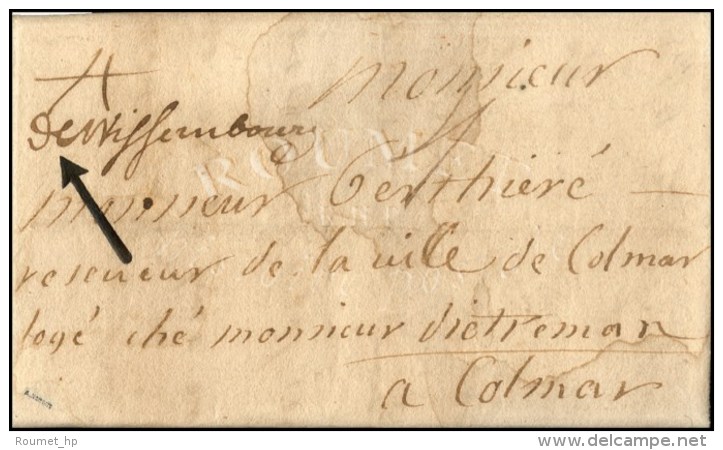 4
Monsieur
de Wissembourg
ROUMET
monsieur Berthieré
reseveur de la ville de Colmar
logé ché monsieur dietreman
a Colmar
Roumet_hp
www.delcampe.net